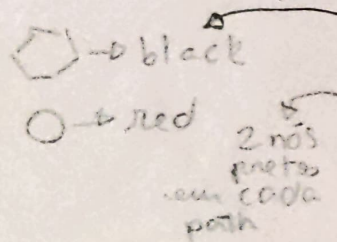 → black
→ red
2 nós
pretos
em cada
path